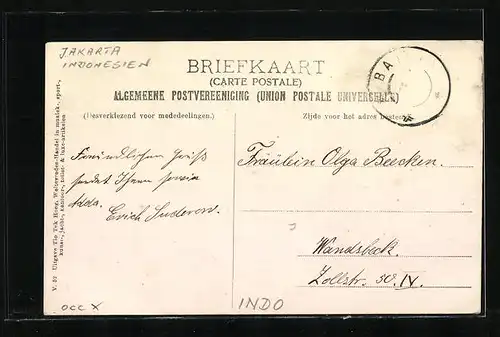 JAKARTA
INDONESIEN
BRIEFKAART
(CARTE POSTALE)
ALGEMEENE POSTVEREENIGING (UNION POSTALE UNIVERSELLE)
(Desverkiezend voor mededeelingen.)
Zijde voor het adres bestemd.
BA
Freundlichen Gruß
sendet Ihnen sowie
Adda.
Erich Suderow.
Fräulein Olga Beecken.
Wandsbeck.
Zollstr. 50. IV.
V. 52 Uitgave Tio Tek Hong, Weltevreden-Handel in muziek-, sport-,
kunst-, jacht-, kantoor-, toilet- & luxe-artikelen
OCC X
INDO